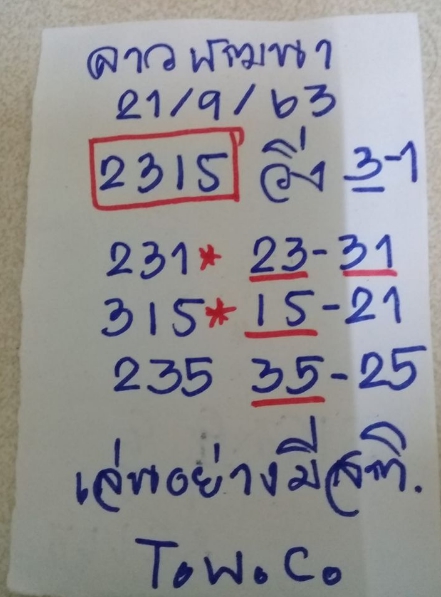 ลาวพัฒนา
21/9/63
2315 วิ่ง 3-1
231* 23-31
315* 15-21
235 35-25
เล่นอย่างมีสติ.
T.W.C.